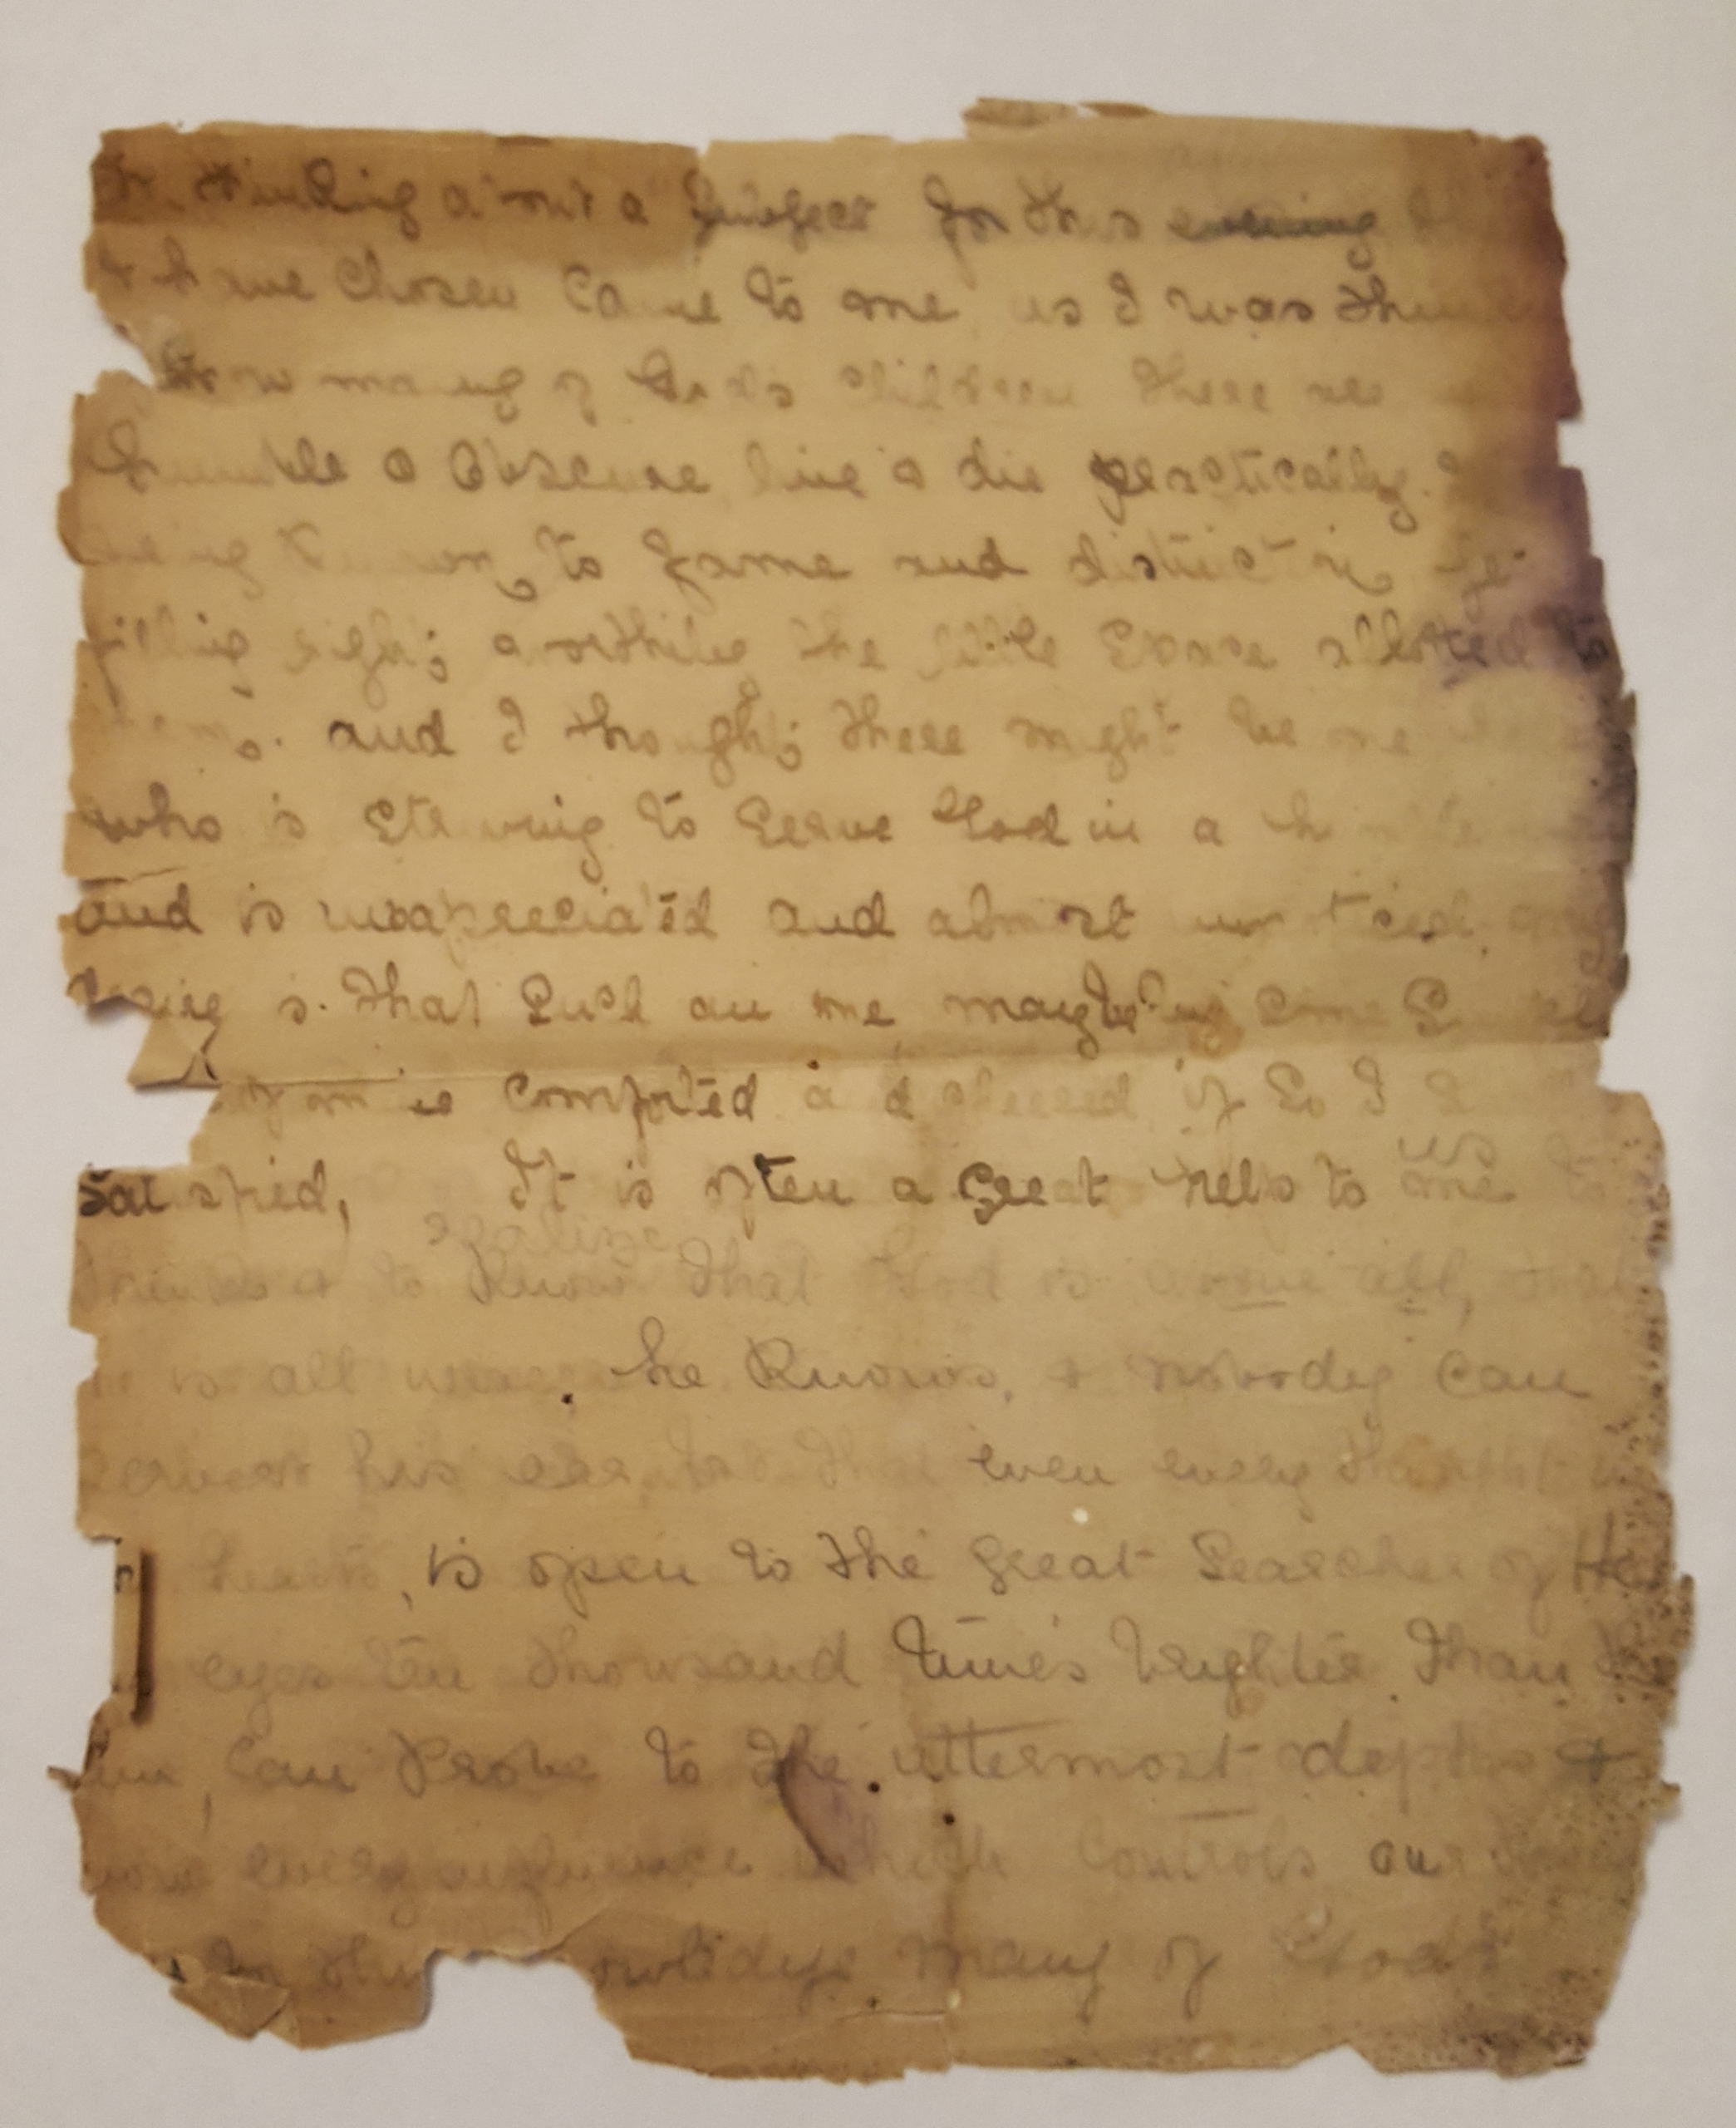 In thinking about a subject for this evening
I have chosen came to me as I was thin
how many of Gods children there are
humble & obscure live & die practically
being known to fame and distinction
filling rightly & worthily the little space allotted to
them. and I thought there might be one
who is striving to serve God in a humble
and is unappreciated and almost unnoticed
is that such an one maybe some
comforted and cheered if so I
satisfied, It is often a great help to us me to
realize
think & to know that God is above all, that
is all he knows, & nobody can
his that even every thought
hearts, is open to the great Searcher of He
eyes ten thousand times brighter than the
Sun, can probe to the uttermost depths &
every influence which controls our
In this knowledge many of God's